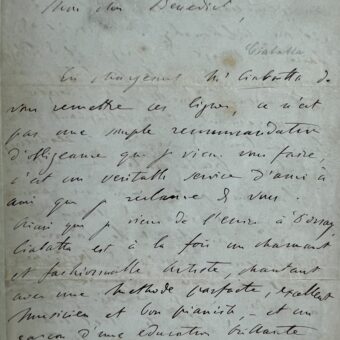 Mon cher Benedict,
Ciabatta
En chargeant Mr Ciabatta de
vous remettre ces lignes, ce n'est
pas une simple recommandation
d'obligeance que je viens vous faire,
c'est un veritable service d'ami à
ami que je reclame de vous.
Ainsi que je viens de l'ecrire à d'Orsay,
Ciabatta est à la fois un charmant
et fashionable artiste, chantant
avec une methode parfaite, excellent
musicien et bon pianiste, et un
garçon d'une éducation brillante